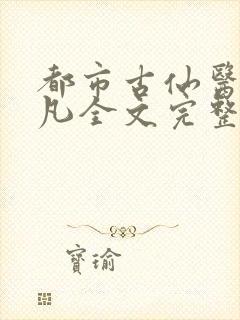 都市古仙醫
凡全文完整
寶瑜